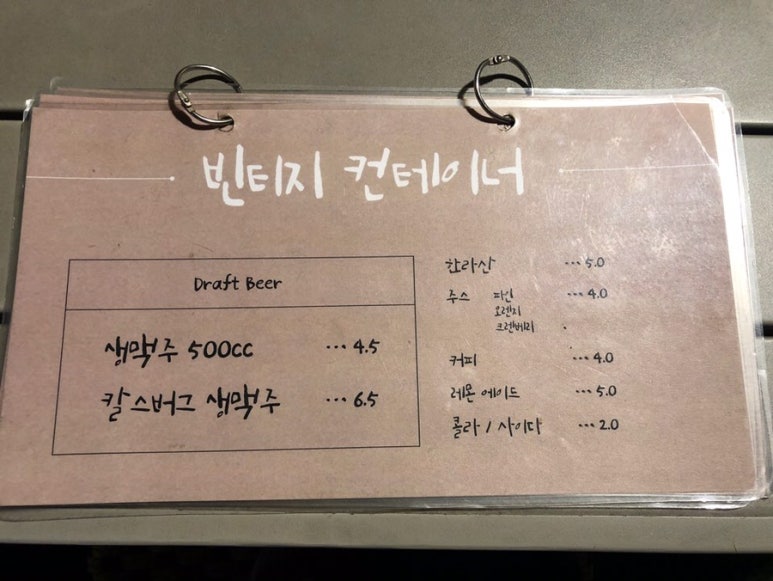 빈티지 컨테이너
Draft Beer
생맥주 500cc ... 4.5
칼스버그 생맥주 ... 6.5
한라산 ... 5.0
주스 파인 ... 4.0
오렌지
크렌베리
커피 ... 4.0
레몬에이드 ... 5.0
콜라 / 사이다 ... 2.0